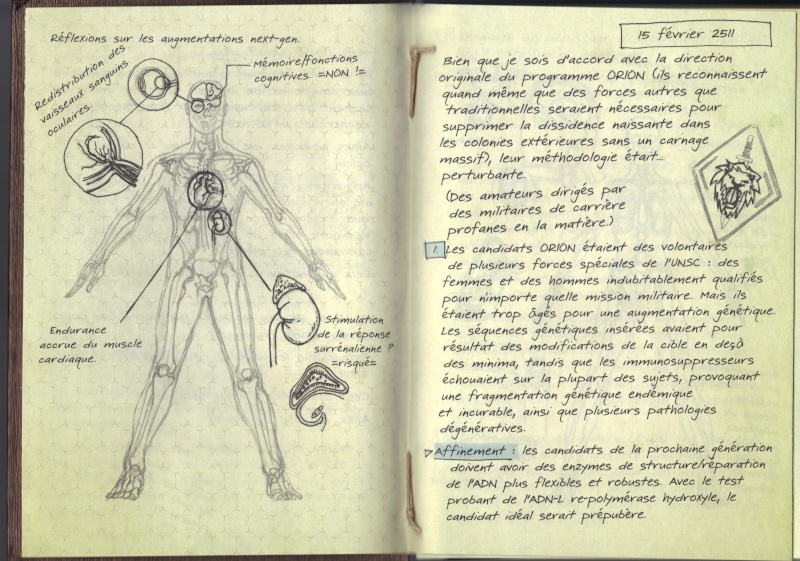 Réflexions sur les augmentations next-gen.
Redistribution des
vaisseaux sanguins
oculaires.
Mémoire/fonctions
cognitives. =NON !=
Endurance
accrue du muscle
cardiaque.
Stimulation
de la réponse
surrénalienne ?
=risqué=
15 février 2511
Bien que je sois d'accord avec la direction
originale du programme ORION (ils reconnaissent
quand même que des forces autres que
traditionnelles seraient nécessaires pour
supprimer la dissidence naissante dans
les colonies extérieures sans un carnage
massif), leur méthodologie était...
perturbante.
(Des amateurs dirigés par
des militaires de carrière
profanes en la matière.)
1. Les candidats ORION étaient des volontaires
de plusieurs forces spéciales de l'UNSC : des
femmes et des hommes indubitablement qualifiés
pour n'importe quelle mission militaire. Mais ils
étaient trop âgés pour une augmentation génétique.
Les séquences génétiques insérées avaient pour
résultat des modifications de la cible en deçà
des minima, tandis que les immunosuppresseurs
échouaient sur la plupart des sujets, provoquant
une fragmentation génétique endémique
et incurable, ainsi que plusieurs pathologies
dégénératives.
Affinement : les candidats de la prochaine génération
doivent avoir des enzymes de structure/réparation
de l'ADN plus flexibles et robustes. Avec le test
probant de l'ADN-L re-polymérase hydroxyle, le
candidat idéal serait prépubère.